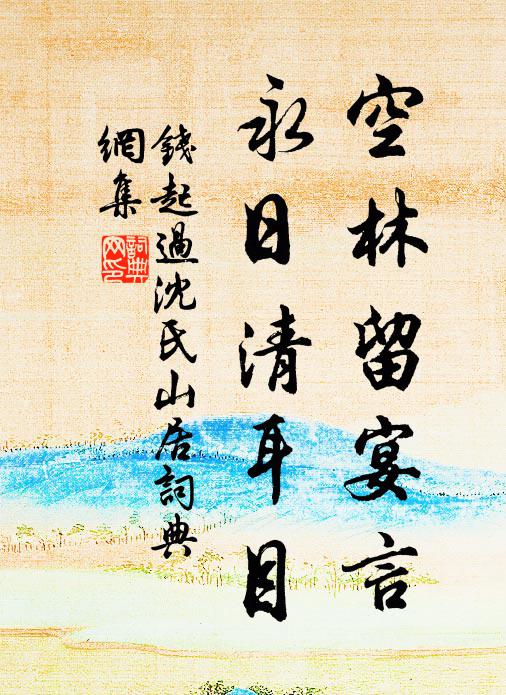 空林留宴言
永日清耳目
錢起過沈氏山居詞典
網集
詞典
网印